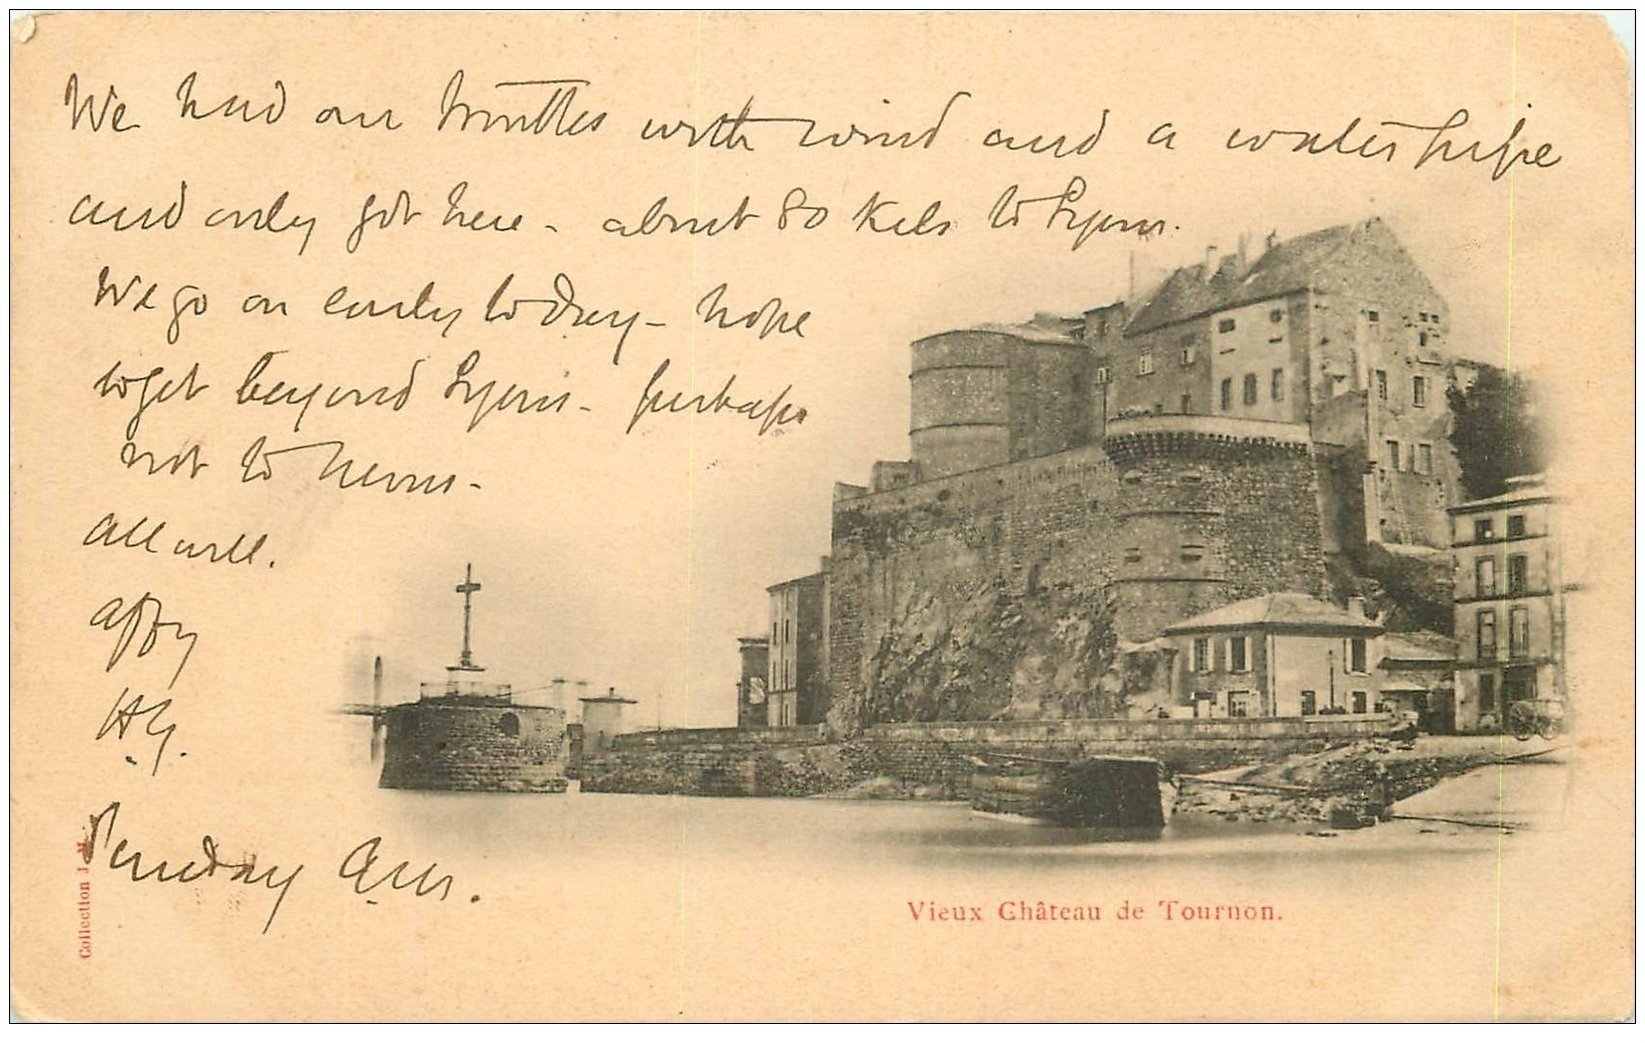 We had our troubles with wind and a water pipe
and only got here - about 80 Kils to Lyons.
We go on early today - hope
to get beyond Lyons - perhaps
not to Nevers -
all well.
affy
H.G.
Sunday
Vieux Château de Tournon.
Collection J. M.